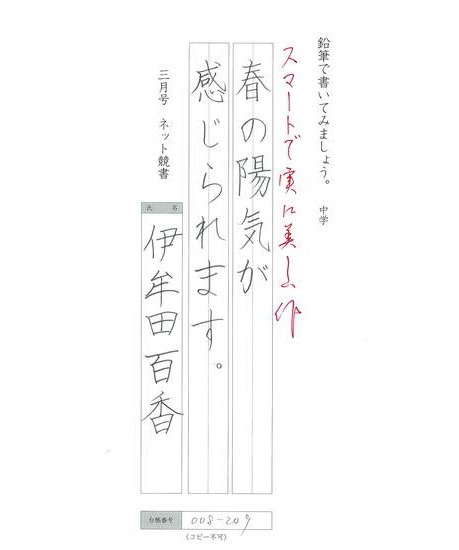 鉛筆で書いてみましょう。 中学
スマートで実に美しい作
春の陽気が
感じられます。
三月号 ネット競書
氏 名
伊牟田百香
台帳番号 008-209
(コピー不可)